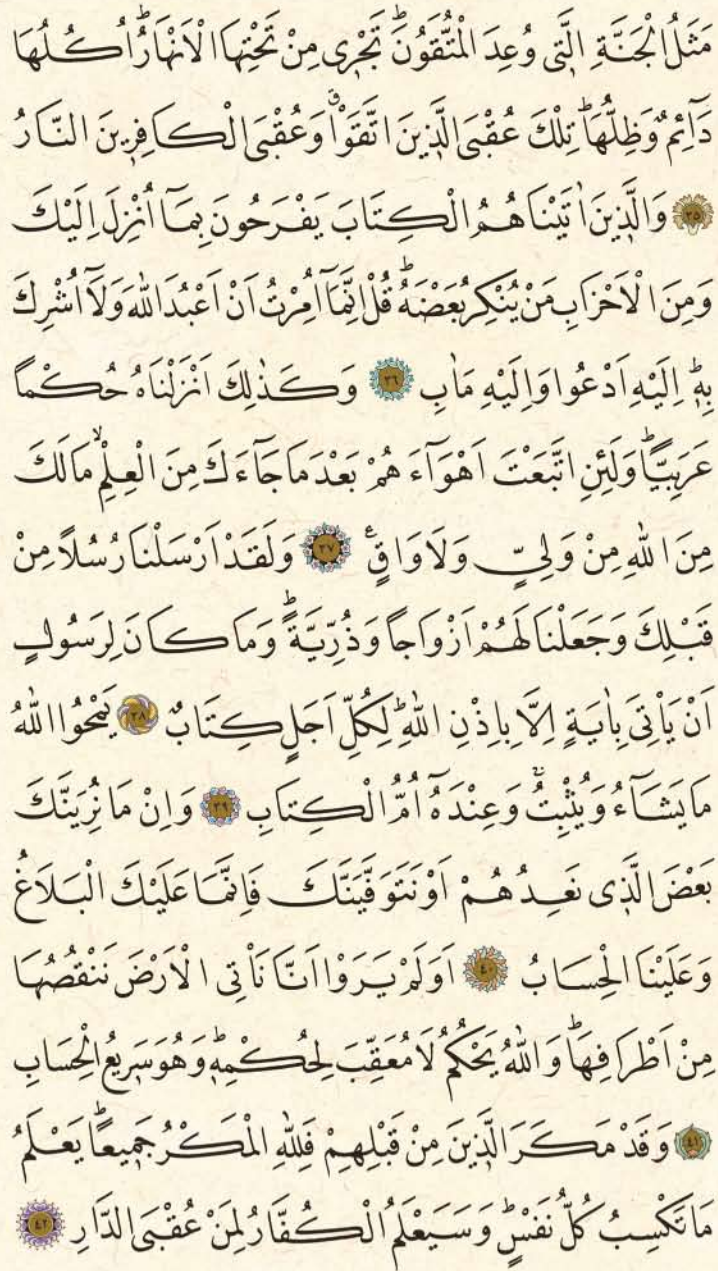 مَثَلُ الْجَنَّةِ الَّتٖي وُعِدَ الْمُتَّقُونَؕ تَجْرٖي مِنْ تَحْتِهَا الْاَنْهَارُؕ اُكُلُهَا
دَٓائِمٌ وَظِلُّهَاؕ تِلْكَ عُقْبَى الَّذٖينَ اتَّقَوْاۗ وَعُقْبَى الْكَافِرٖينَ النَّارُ
﴿٣٥﴾ وَالَّذٖينَ اٰتَيْنَاهُمُ الْكِتَابَ يَفْرَحُونَ بِمَٓا اُنْزِلَ اِلَيْكَ
وَمِنَ الْاَحْزَابِ مَنْ يُنْكِرُ بَعْضَهُؕ قُلْ اِنَّمَٓا اُمِرْتُ اَنْ اَعْبُدَ اللّٰهَ وَلَٓا اُشْرِكَ
بِهٖؕ اِلَيْهِ اَدْعُوا وَاِلَيْهِ مَاٰبِ ﴿٣٦﴾ وَكَذٰلِكَ اَنْزَلْنَاهُ حُكْماً
عَرَبِيّاًؕ وَلَئِنِ اتَّبَعْتَ اَهْوَٓاءَهُمْ بَعْدَ مَا جَٓاءَكَ مِنَ الْعِلْمِۙ مَا لَكَ
مِنَ اللّٰهِ مِنْ وَلِيٍّ وَلَا وَاقٍࣖ ﴿٣٧﴾ وَلَقَدْ اَرْسَلْنَا رُسُلاً مِنْ
قَبْلِكَ وَجَعَلْنَا لَهُمْ اَزْوَاجاً وَذُرِّيَّةًؕ وَمَا كَانَ لِرَسُولٍ
اَنْ يَأْتِيَ بِاٰيَةٍ اِلَّا بِاِذْنِ اللّٰهِؕ لِكُلِّ اَجَلٍ كِتَابٌ ﴿٣٨﴾ يَمْحُوا اللّٰهُ
مَا يَشَٓاءُ وَيُثْبِتُۚ وَعِنْدَهُٓ اُمُّ الْكِتَابِ ﴿٣٩﴾ وَاِنْ مَا نُرِيَنَّكَ
بَعْضَ الَّذٖي نَعِدُهُمْ اَوْ نَتَوَفَّيَنَّكَ فَاِنَّمَا عَلَيْكَ الْبَلَاغُ
وَعَلَيْنَا الْحِسَابُ ﴿٤٠﴾ اَوَلَمْ يَرَوْا اَنَّا نَأْتِي الْاَرْضَ نَنْقُصُهَا
مِنْ اَطْرَافِهَاؕ وَاللّٰهُ يَحْكُمُ لَا مُعَقِّبَ لِحُكْمِهٖؕ وَهُوَ سَرٖيعُ الْحِسَابِ
﴿٤١﴾ وَقَدْ مَكَرَ الَّذٖينَ مِنْ قَبْلِهِمْ فَلِلّٰهِ الْمَكْرُ جَمٖيعاًؕ يَعْلَمُ
مَا تَكْسِبُ كُلُّ نَفْسٍؕ وَسَيَعْلَمُ الْكُفَّارُ لِمَنْ عُقْبَى الدَّارِ ﴿٤٢﴾